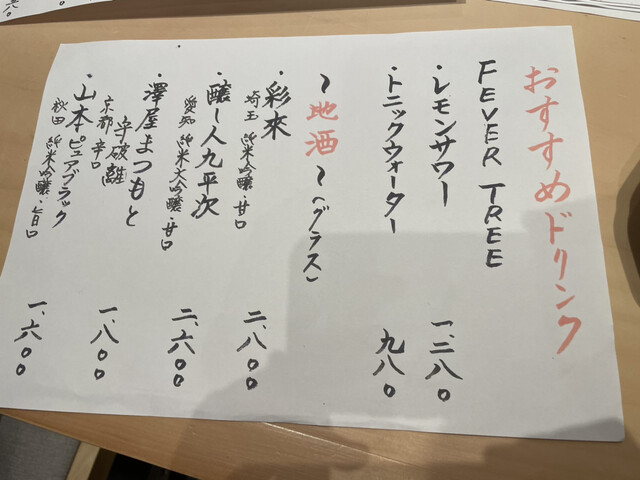 おすすめドリンク
FEVER TREE
・レモンサワー 一、二八〇
・トニックウォーター 九八〇
〜地酒〜(グラス)
・彩來 二、八〇〇
埼玉 純米吟醸・甘口
・醸し人九平次 二、六〇〇
愛知 純米大吟醸・甘口
・澤屋まつもと
守破離 一、八〇〇
京都 辛口
・山本ピュアブラック 一、六〇〇
秋田 純米吟醸・旨口